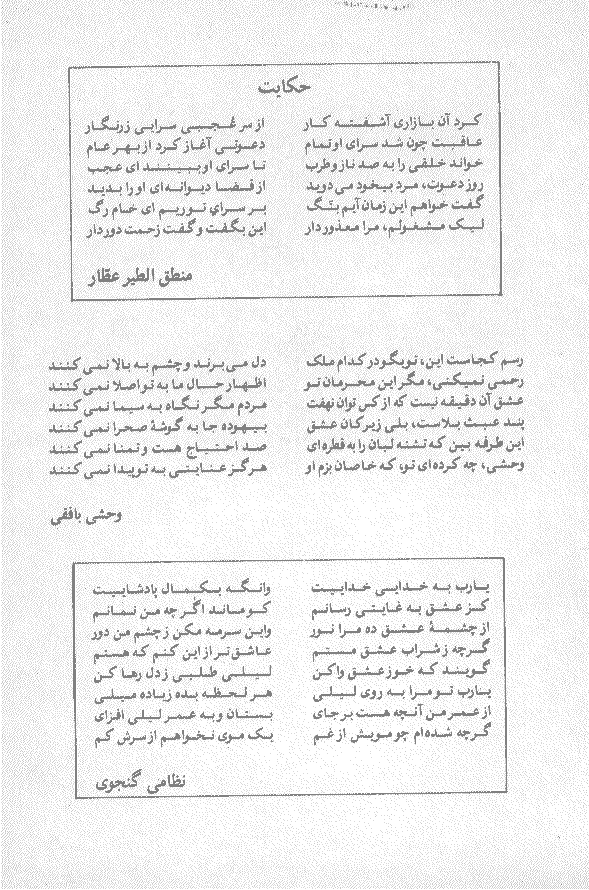 حکایت
کرد آن بازاری آشفته کار از سر عُجبی سرایی زرنگار
عاقبت چون شد سرای او تمام دعوتی آغاز کرد از بهر عام
خواند خلقی را به صد ناز و طرب تا سرای او ببینند ای عجب
روز دعوت، مرد بیخود می دوید از قضا دیوانه ای او را بدید
گفت خواهم این زمان آیم بتگ بر سرای تو ریم ای خام رگ
لیک مشغولم، مرا معذور دار این بگفت و گفت زحمت دور دار
منطق الطیر عطّار
رسم کجاست این، تو بگو در کدام ملک دل می برند و چشم به بالا نمی کنند
رحمی نمیکنی، مگر این محرمان تو اظهار حال ما به تو اصلا نمی کنند
عشق آن دقیقه نیست که از کس توان نهفت مردم مگر نگاه به سیما نمی کنند
پند عبث بلاست، بلی زیرکان عشق بیهوده جا به گوشهٔ صحرا نمی کنند
این طرفه بین که تشنه لبان را به قطره ای صد احتیاج هست و تمنا نمی کنند
وحشی، چه کرده ای تو، که خاصان بزم او هرگز عنایتی به تو پیدا نمی کنند
وحشی بافقی
یارب به خدایی خداییت وانگه بکمال پادشاییت
کز عشق به غایتی رسانم کو ماند اگر چه من نمانم
از چشمهٔ عشق ده مرا نور واین سرمه مکن ز چشم من دور
گرچه ز شراب عشق مستم عاشق تر از این کنم که هستم
گویند که خو ز عشق واکن لیلی طلبی ز دل رها کن
یارب تو مرا به روی لیلی هر لحظه بده زیاده میلی
از عمر من آنچه هست بر جای بستان و به عمر لیلی افزای
گرچه شده ام چو مویش از غم یک موی نخواهم از سرش کم
نظامی گنجوی